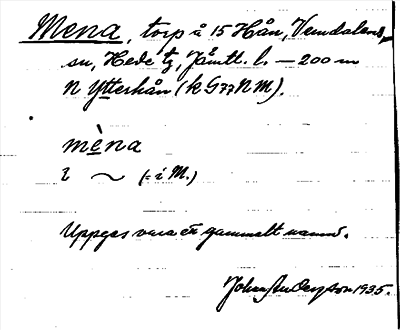 Mena, torp å 15 Hån, Vemdalens
sn, Hede tg, Jämtl. l. — 200 m
N Ytterhån (k G77 N M).
mèna
i ~ (= i M.)
Uppges vara ett gammalt namn.
John Anderson 1935.